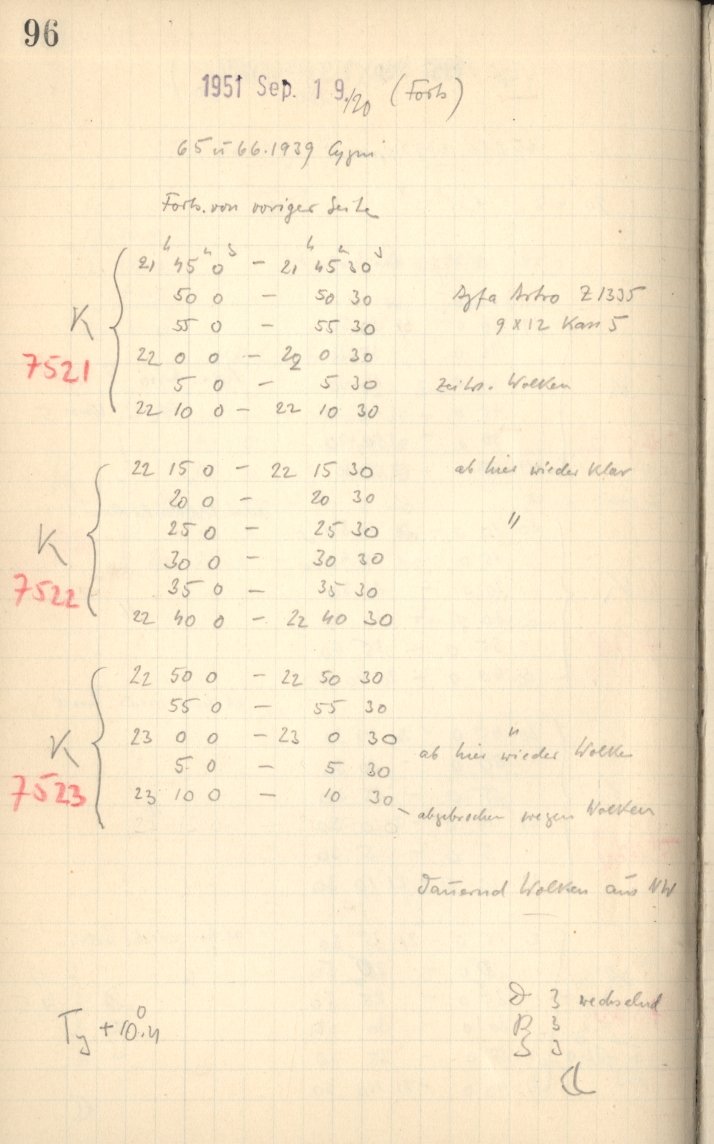 96
1951 Sep. 19./20 (Forts)
65 u 66.1939 Cygni
Forts. von voriger Seite
21 h 45 m 0 s — 21 h 45 m 30 s
50 0 — 50 30 Agfa Astro Z 1335
K 55 0 — 55 30 9 x 12 Kass 5
7521 22 0 0 — 22 0 30
5 0 — 5 30 zeitw. Wolken
22 10 0 — 22 10 30
22 15 0 — 22 15 30 ab hier wieder klar
20 0 — 20 30
K 25 0 — 25 30 "
30 0 — 30 30
7522 35 0 — 35 30
22 40 0 — 22 40 30
22 50 0 — 22 50 30
55 0 — 55 30
K 23 0 0 — 23 0 30 ab hier wieder Wolken
5 0 — 5 30
7523 23 10 0 — 10 30 abgebrochen wegen Wolken
dauernd Wolken aus NW
3 wechselnd
3
3